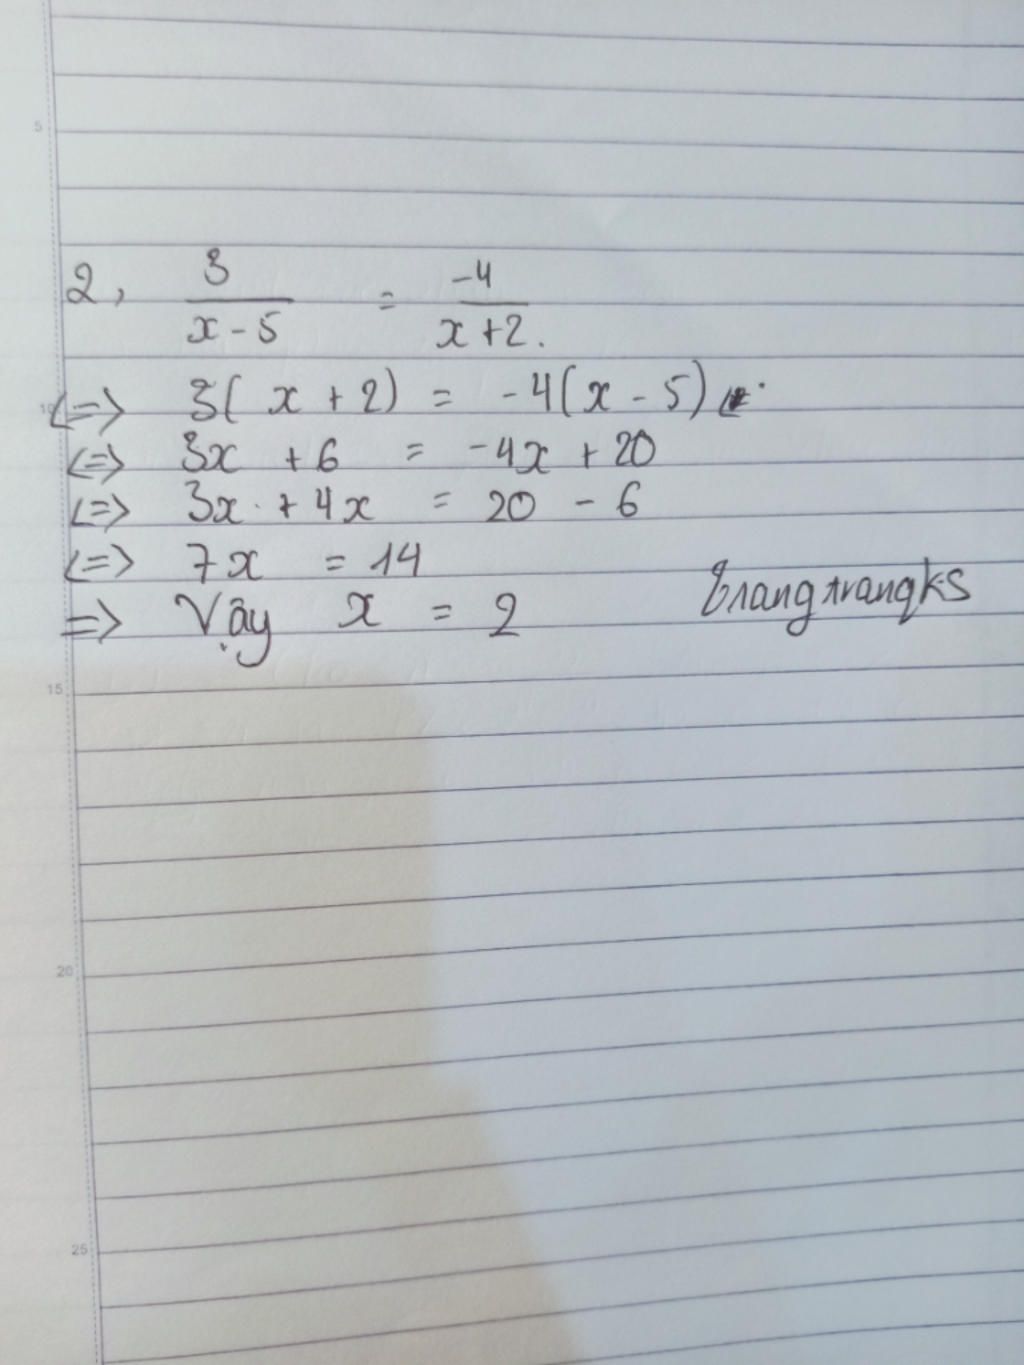 2, 3/(x - 5) = -4/(x + 2).
<=> 3( x + 2) = -4(x - 5)
<=> 3x + 6 = -4x + 20
<=> 3x + 4x = 20 - 6
<=> 7x = 14
=> Vậy x = 2
trangtrangks
5
10
15
20
25